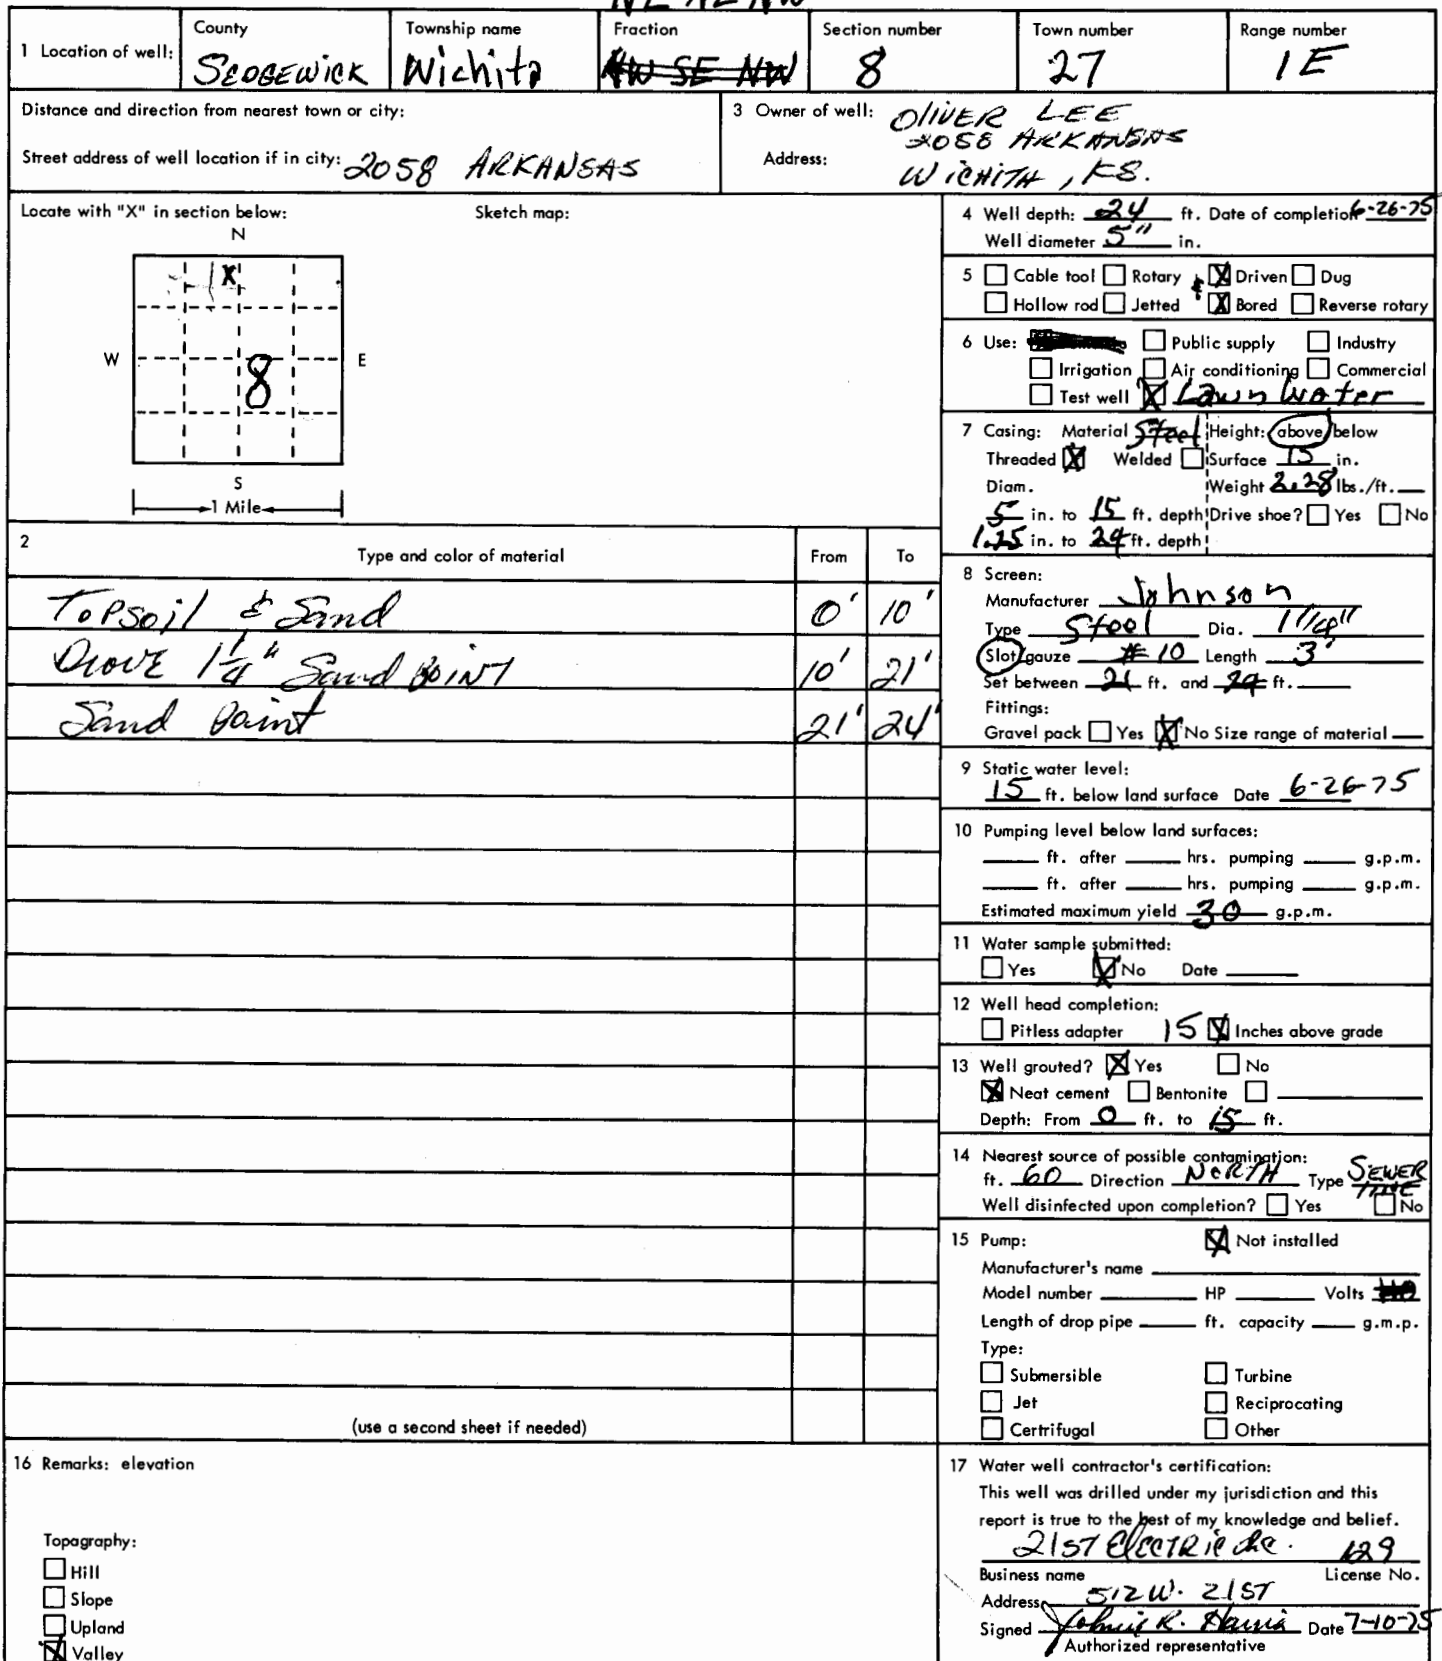 NE NE NW
1 Location of well:
County
SEDGEWICK
Township name
Wichita
Fraction
NW SE NW
Section number
8
Town number
27
Range number
1E
Distance and direction from nearest town or city:
Street address of well location if in city: 2058 ARKANSAS
3 Owner of well: OLIVER LEE
2058 ARKANSAS
Address: WICHITA, KS.
Locate with "X" in section below:
Sketch map:
N
X
W
8
E
S
1 Mile
4 Well depth: 24 ft. Date of completion 6-26-75
Well diameter 5" in.
5 Cable tool Rotary & X Driven Dug
Hollow rod Jetted X Bored Reverse rotary
6 Use: Public supply Industry
Irrigation Air conditioning Commercial
Test well X Lawn Water
7 Casing: Material Steel Height: above/below
Threaded X Welded Surface 15 in.
Diam. Weight 2.28 lbs./ft.
5 in. to 15 ft. depth Drive shoe? Yes No
1.25 in. to 24 ft. depth
2
Type and color of material From To
Topsoil & Sand 0' 10'
Drove 1 1/4" Sand POINT 10' 21'
Sand Point 21' 24'
(use a second sheet if needed)
8 Screen:
Manufacturer Johnson
Type Steel Dia. 1 1/4"
Slot/gauze # 10 Length 3'
Set between 21 ft. and 24 ft.
Fittings:
Gravel pack Yes X No Size range of material
9 Static water level:
15 ft. below land surface Date 6-26-75
10 Pumping level below land surfaces:
ft. after hrs. pumping g.p.m.
ft. after hrs. pumping g.p.m.
Estimated maximum yield 30 g.p.m.
11 Water sample submitted:
Yes X No Date
12 Well head completion:
Pitless adapter 15 X Inches above grade
13 Well grouted? X Yes No
X Neat cement Bentonite
Depth: From 0 ft. to 15 ft.
14 Nearest source of possible contamination:
ft. 60 Direction NORTH Type SEWER
LINE
Well disinfected upon completion? Yes No
15 Pump: X Not installed
Manufacturer's name
Model number HP Volts
Length of drop pipe ft. capacity g.m.p.
Type:
Submersible Turbine
Jet Reciprocating
Certrifugal Other
16 Remarks: elevation
Topography:
Hill
Slope
Upland
X Valley
17 Water well contractor's certification:
This well was drilled under my jurisdiction and this
report is true to the best of my knowledge and belief.
21ST Electric Inc. 129
Business name License No.
Address 512 W. 21ST
Signed Johnie R. Harris Date 7-10-75
Authorized representative